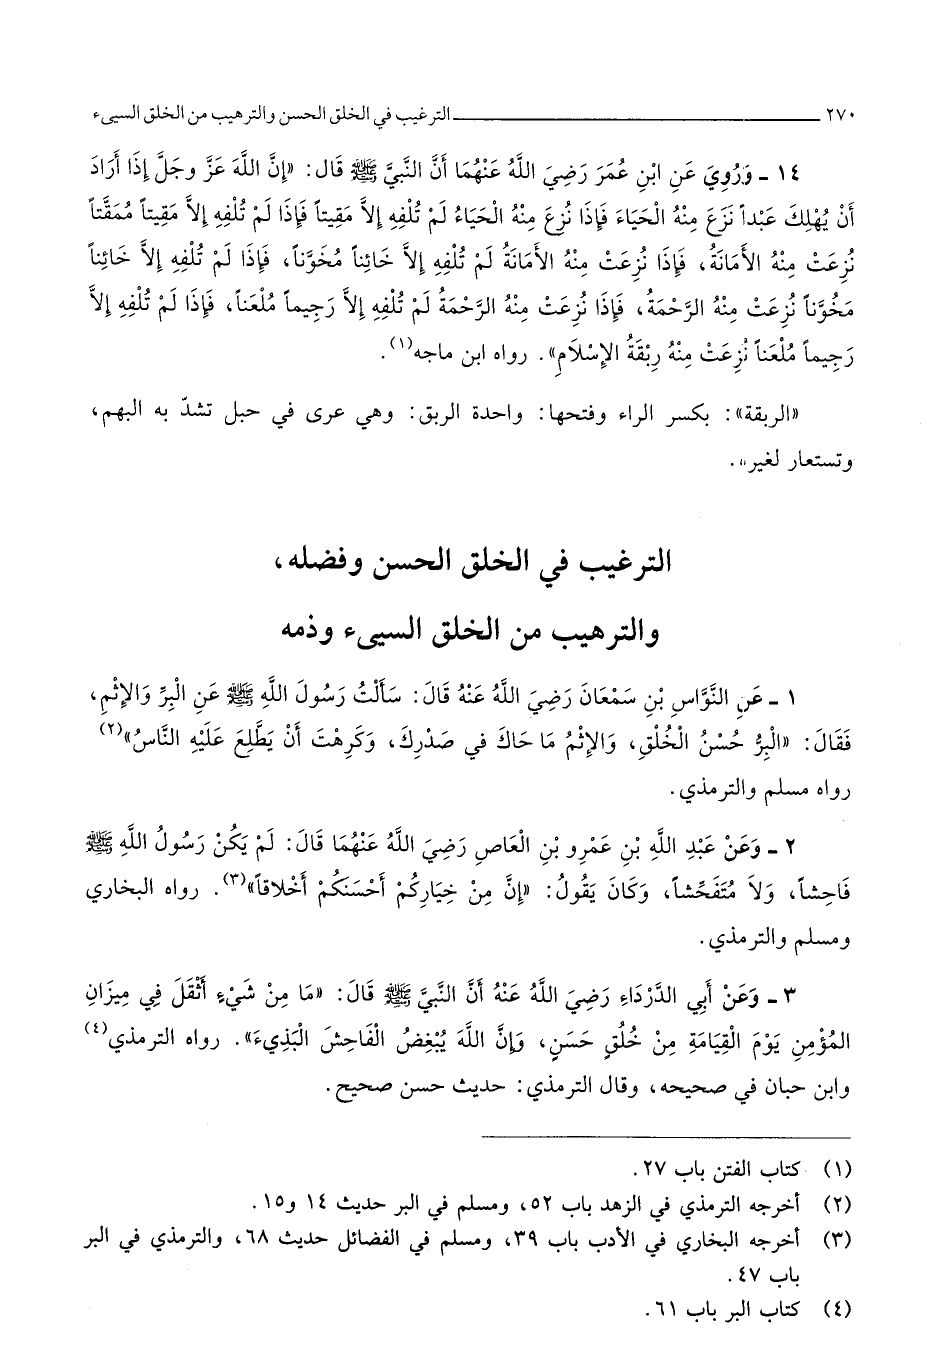 ٢٧٠ ــــــــــــــــــــــــــــــــــــــــ الترغيب في الخلق الحسن والترهيب من الخلق السيىء
١٤ ـ وَرُوِيَ عَنِ ابْنِ عُمَرَ رَضِيَ اللَّهُ عَنْهُمَا أَنَّ النَّبِيَّ ﷺ قَالَ: «إِنَّ اللَّهَ عَزَّ وجَلَّ إِذَا أَرَادَ
أَنْ يُهْلِكَ عَبْداً نَزَعَ مِنْهُ الْحَيَاءَ فَإِذَا نُزِعَ مِنْهُ الْحَيَاءُ لَمْ تُلْفِهِ إِلاَّ مَقِيتاً فَإِذَا لَمْ تُلْفِهِ إِلاَّ مَقِيتاً مُمَقَّتاً
نُزِعَتْ مِنْهُ الأَمَانَةُ، فَإِذَا نُزِعَتْ مِنْهُ الأَمَانَةُ لَمْ تُلْفِهِ إِلاَّ خَائِناً مُخَوَّناً، فَإِذَا لَمْ تُلْفِهِ إِلاَّ خَائِناً
مَخُوَّناً نُزِعَتْ مِنْهُ الرَّحْمَةُ، فَإِذَا نُزِعَتْ مِنْهُ الرَّحْمَةُ لَمْ تُلْفِهِ إِلاَّ رَجِيماً مُلْعَناً، فَإِذَا لَمْ تُلْفِهِ إِلاَّ
رَجِيماً مُلْعَناً نُزِعَتْ مِنْهُ رِبْقَةُ الإِسْلَامِ». رواه ابن ماجه(١).
«الربقة»: بكسر الراء وفتحها: واحدة الربق: وهي عرى في حبل تشدّ به البهم،
وتستعار لغيره.
الترغيب في الخلق الحسن وفضله،
والترهيب من الخلق السيىء وذمه
١ ـ عَنِ النَّوَّاسِ بْنِ سَمْعَانَ رَضِيَ اللَّهُ عَنْهُ قَالَ: سَأَلْتُ رَسُولَ اللَّهِ ﷺ عَنِ الْبِرِّ وَالإِثْمِ،
فَقَالَ: «الْبِرُّ حُسْنُ الْخُلْقِ، وَالإِثْمُ مَا حَاكَ في صَدْرِكَ، وَكَرِهْتَ أَنْ يَطَّلِعَ عَلَيْهِ النَّاسُ»(٢)
رواه مسلم والترمذي.
٢ ـ وَعَنْ عَبْدِ اللَّهِ بْنِ عَمْرِو بْنِ الْعَاصِ رَضِيَ اللَّهُ عَنْهُمَا قَالَ: لَمْ يَكُنْ رَسُولُ اللَّهِ ﷺ
فَاحِشاً، وَلاَ مُتَفَحِّشاً، وَكَانَ يَقُولُ: «إِنَّ مِنْ خِيَارِكُمْ أَحْسَنَكُمْ أَخْلاَقاً»(٣). رواه البخاري
ومسلم والترمذي.
٣ ـ وَعَنْ أَبِي الدَّرْدَاءِ رَضِيَ اللَّهُ عَنْهُ أَنَّ النَّبِيَّ ﷺ قَالَ: «مَا مِنْ شَيْءٍ أَثْقَلَ فِي مِيزَانِ
المُؤْمِنِ يَوْمَ الْقِيَامَةِ مِنْ خُلُقٍ حَسَنٍ، وَإِنَّ اللَّهَ يُبْغِضُ الْفَاحِشَ الْبَذِيءَ». رواه الترمذي(٤)
وابن حبان في صحيحه، وقال الترمذي: حديث حسن صحيح.
(١) كتاب الفتن باب ٢٧.
(٢) أخرجه الترمذي في الزهد باب ٥٢، ومسلم في البر حديث ١٤ و١٥.
(٣) أخرجه البخاري في الأدب باب ٣٩، ومسلم في الفضائل حديث ٦٨، والترمذي في البر
باب ٤٧.
(٤) كتاب البر باب ٦١.